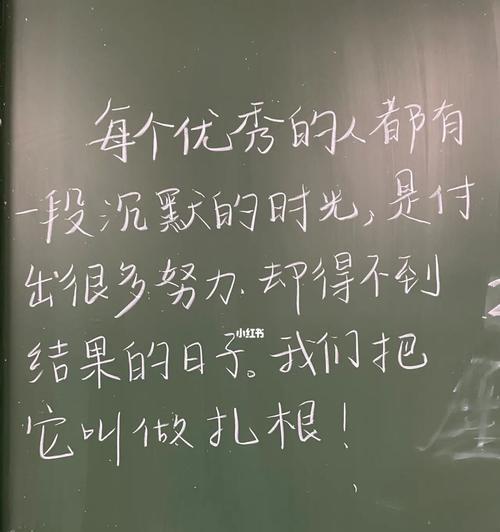 每个优秀的人都有
一段沉默的时光,是付
出很多努力、却得不到
小红书
结果的日子。我们把
它叫做扎根!